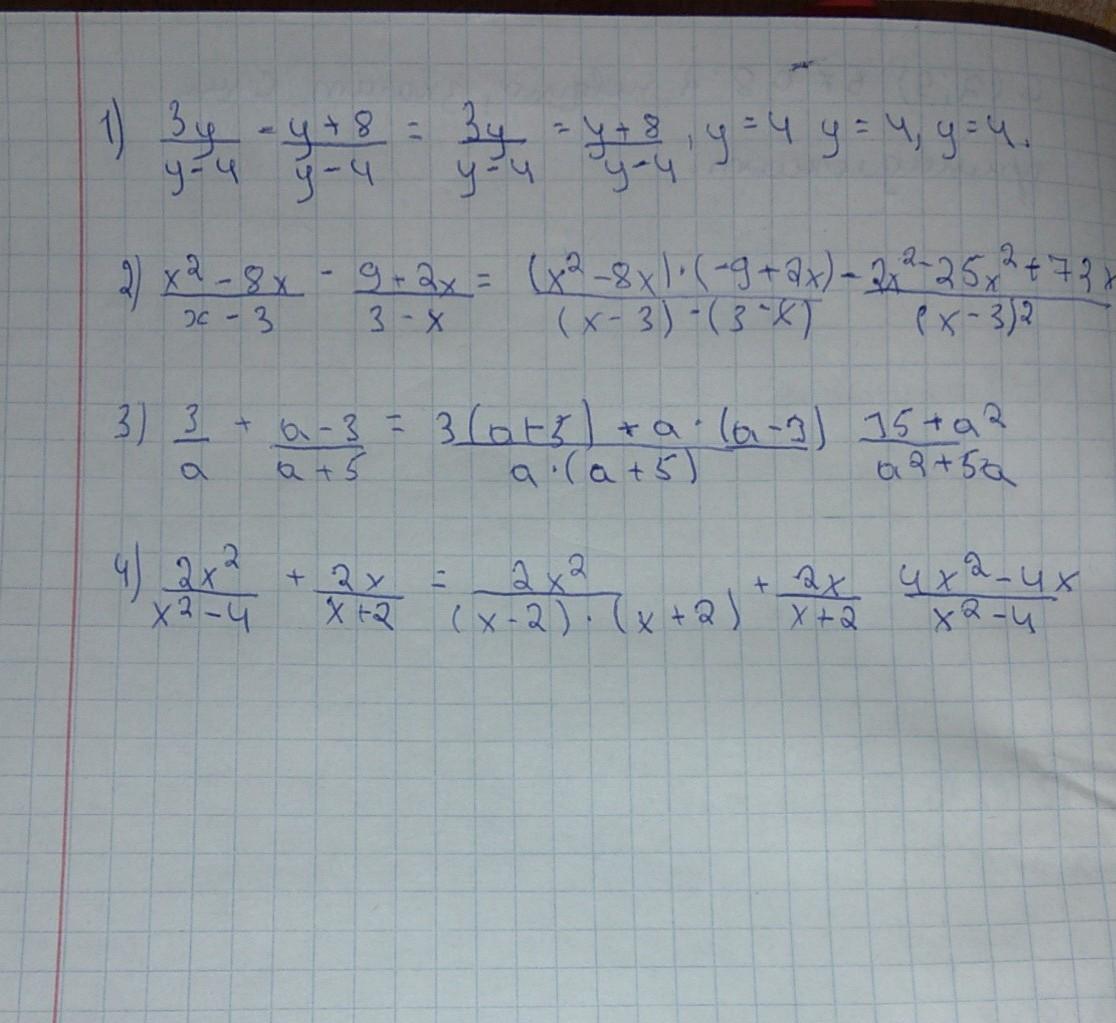 1) 3y/y-4 - y+8/y-4 = 3y/y-4 = y+8/y-4, y=4 y=4, y=4.
2) x²-8x/x-3 - 9+2x/3-x = (x²-8x)·(-9+2x)-2x²-25x²+72x/(x-3)-(3-x) (x-3)2
3) 3/a + a-3/a+5 = 3(a+5)+a·(a-3)/a·(a+5) 15+a²/a2+5a
4) 2x²/x²-4 + 2x/x+2 = 2x²/(x-2)·(x+2) + 2x/x+2 4x²-4x/x²-4